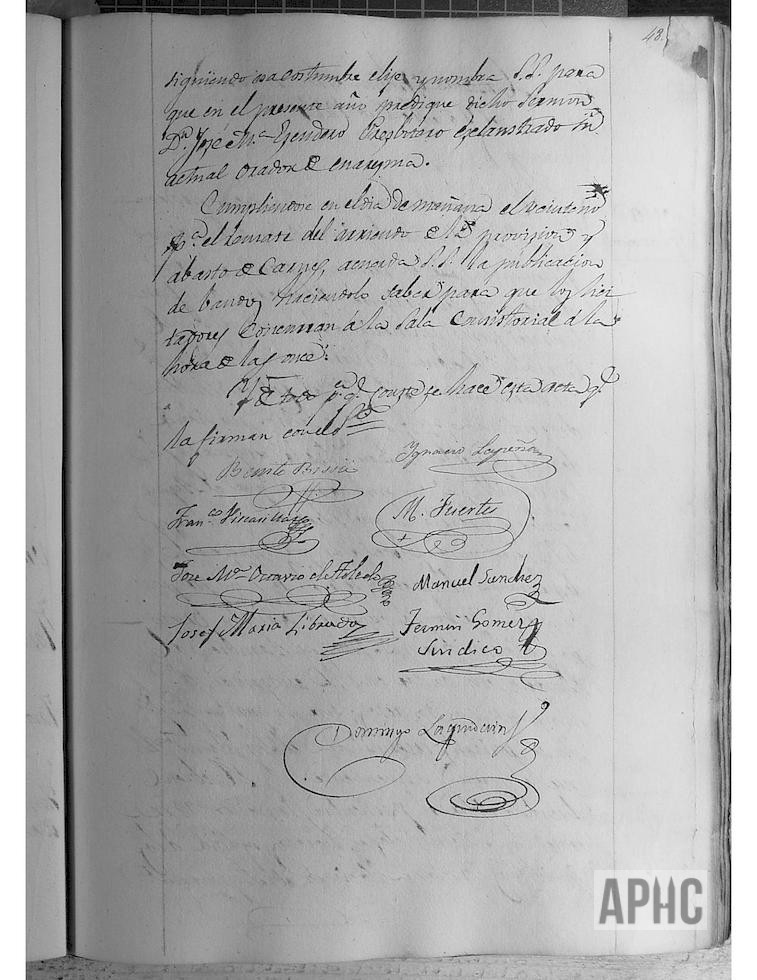 48.
siguiendo esa costumbre elije y nombra S.S. para
que en el presente año predique dicho Sermon
Dn. Jose Ma. Presbitero exclaustrado su
actual orador de cuaresma.
Cumpliendose en el dia de mañana el
pa. el remate del arriendo de la provision y
abasto de Carnes, acuerda S.S. la publicacion
de bandos haciendolo saber para que los lici
tadores concurran á la Sala Consistorial á la
hora de las once.
Y de todo pa. qe. conste se hace esta acta qe.
la firman con el
Ignacio Lapeña
Benito
Franco.
M. Fuertes
Jose Ma. Octavio de Toledo
Manuel Sanchez
Josef Maria Librado
Fermin Gomez
Sindico
Domingo
APHC